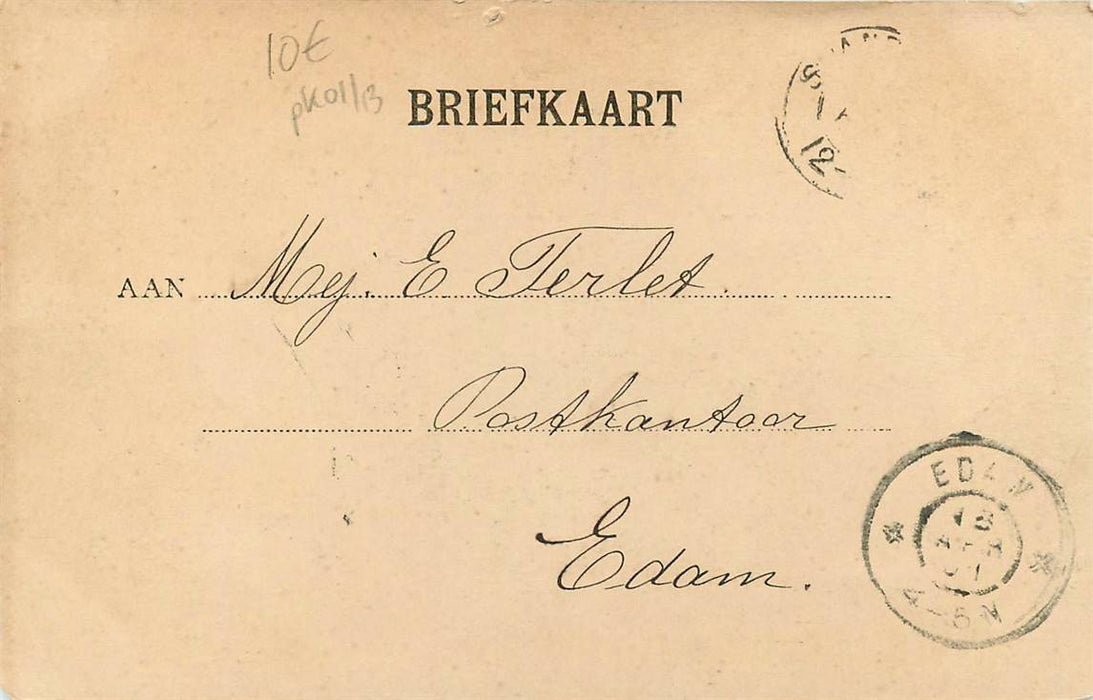 10€
pk01/13
BRIEFKAART
12
AAN Mej. E Terlet.
Postkantoor
Edam.
EDAM
18
APR
01
4-5N